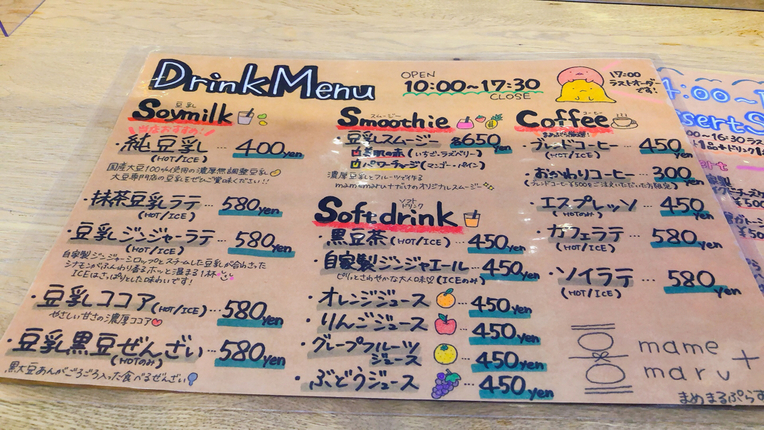 Drink Menu
OPEN
10:00~17:30
CLOSE
17:00
ラストオーダー
です!
豆乳
Soymilk
当店おすすめ!
・純豆乳 … 400yen
(HOT/ICE)
国産大豆100%使用の濃厚無調整豆乳
大豆専門店の豆乳をぜひご賞味ください!!
・抹茶豆乳ラテ … 580yen
(HOT/ICE)
・豆乳ジンジャーラテ … 580yen
(HOT/ICE)
自家製ジンジャーシロップとスチームした豆乳が合わさった
シナモンがふんわり香るホッと温まる1杯
ICEはさっぱりとした味わいです!
・豆乳ココア(HOT/ICE) … 580yen
やさしい甘さの濃厚ココア
・豆乳黒豆ぜんざい … 580yen
(HOTのみ)
黒大豆あんがごろごろ入った食べるぜんざい
スムージー
Smoothie
豆乳スムージー 各650yen
(いちご・ラズベリー)
パワーチャージ(マンゴー・パイン)
濃厚豆乳とフルーツで作る
mamemaruだけのオリジナルスムージー
ソフト
ドリンク
Softdrink
・黒豆茶(HOT/ICE) … 450yen
・自家製ジンジャエール … 450yen
ピリッとさわやかな大人の味 (ICEのみ)
・オレンジジュース 450yen
・りんごジュース 450yen
・グレープフルーツ
ジュース 450yen
・ぶどうジュース 450yen
コーヒー
Coffee
・ブレンドコーヒー … 450yen
(HOT/ICE)
・おかわりコーヒー … 300yen
・エスプレッソ … 450yen
(HOT)
・カフェラテ … 580yen
(HOT/ICE)
・ソイラテ … 580yen
(HOT/ICE)
mame
maru+
まめまるぷらす